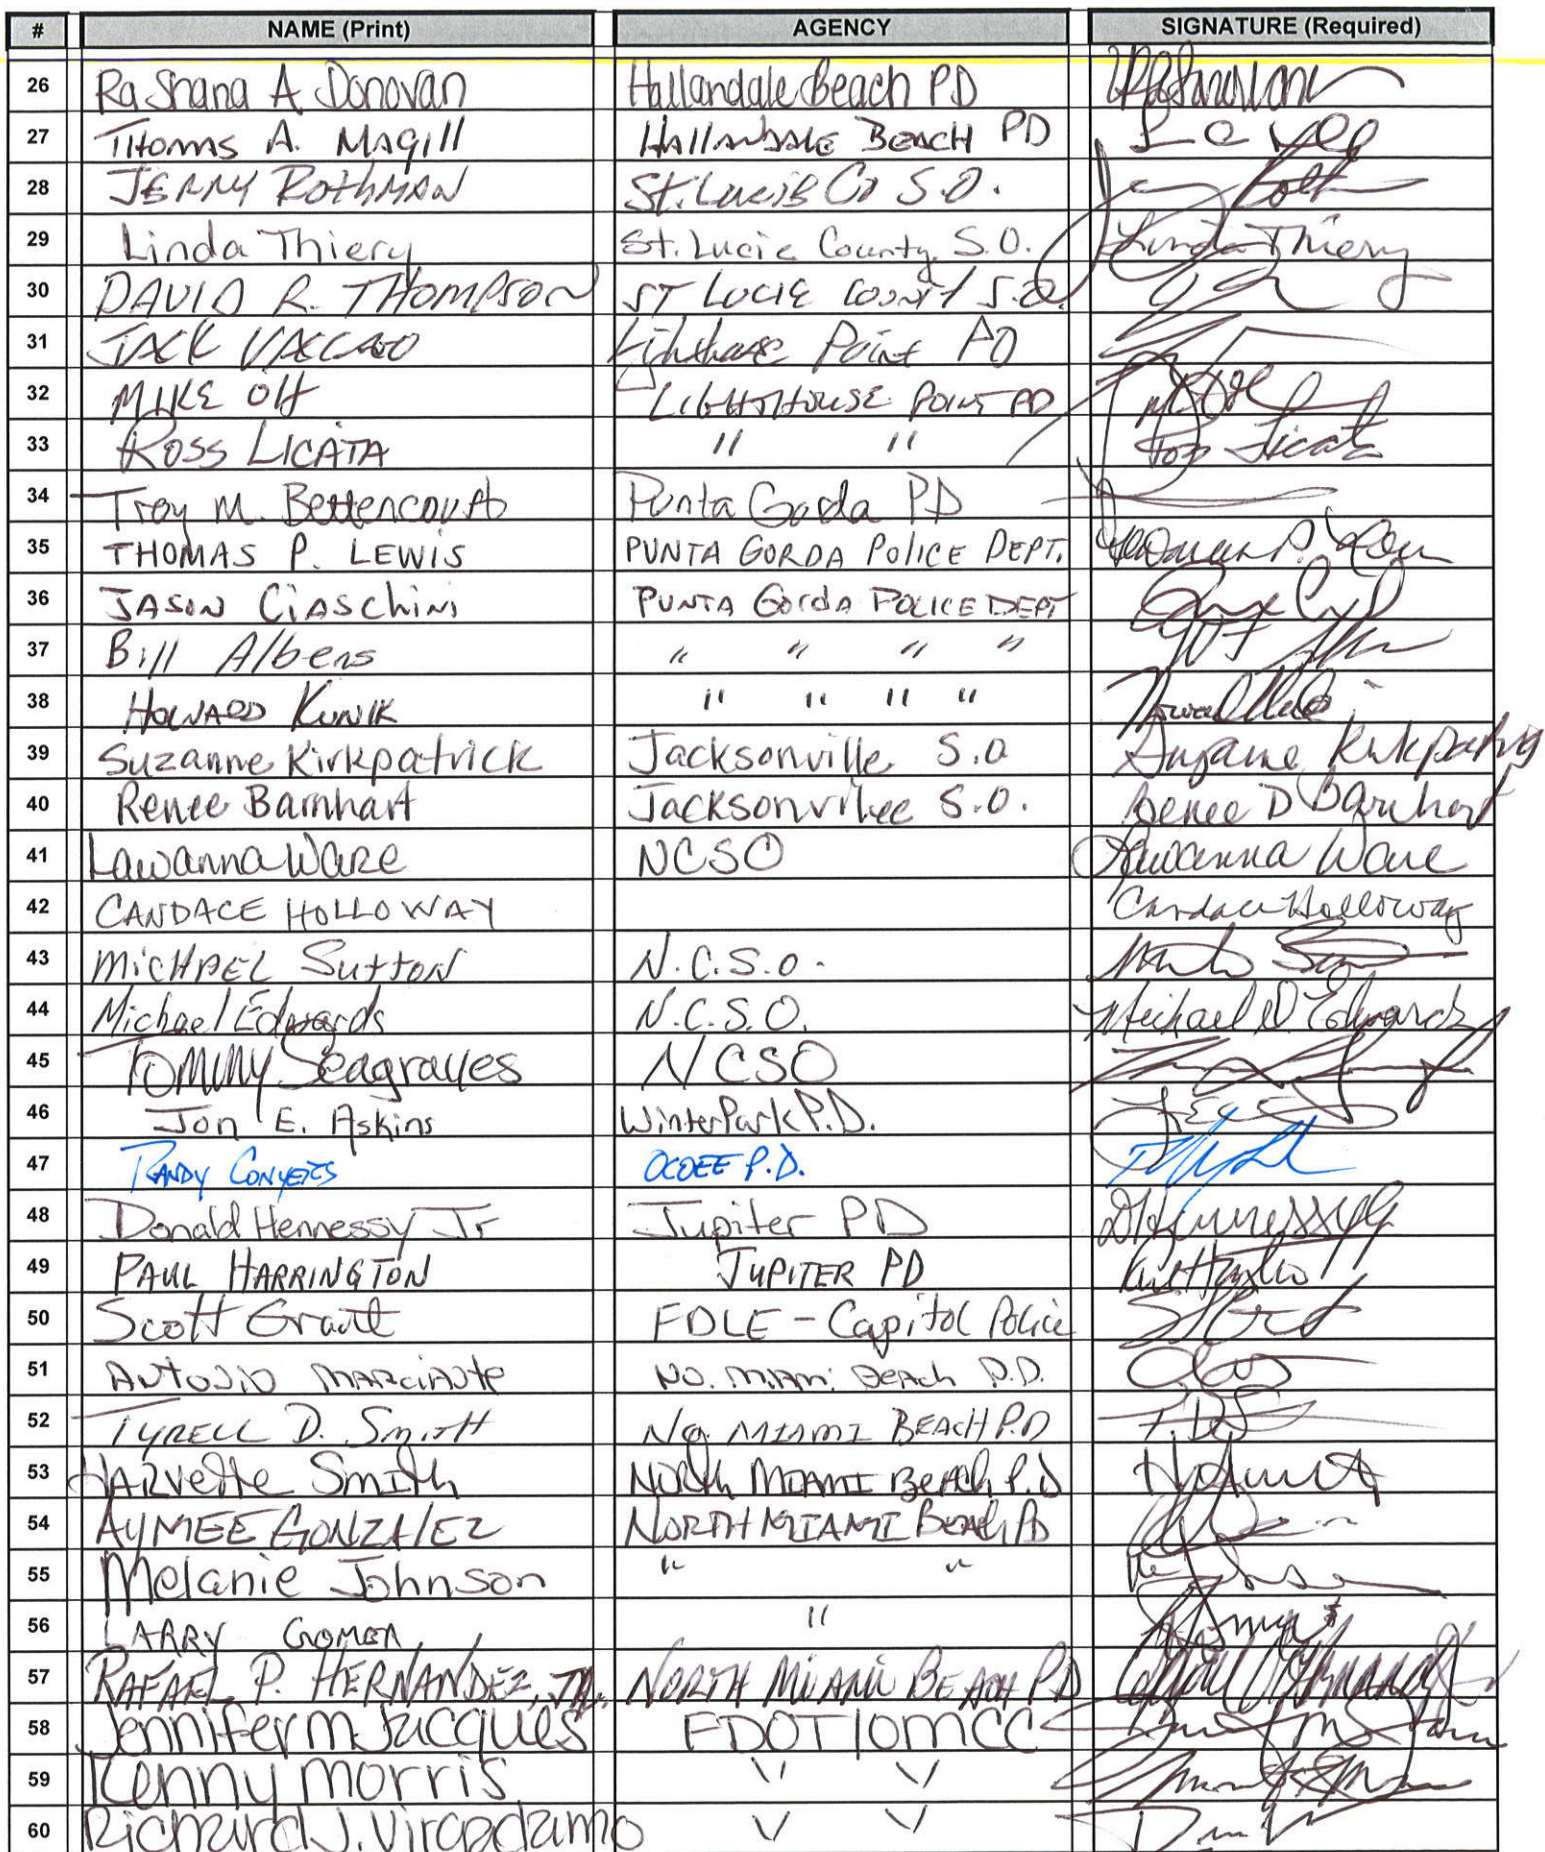 # NAME (Print) AGENCY SIGNATURE (Required)
26 RaShana A Donovan Hallandale Beach PD
27 THOMAS A. MAGIll HAllANDALE BEACH PD
28 JERRY ROTHMAN St. Lucie Co S.O.
29 Linda Thiery St. Lucie County S.O. Linda Thiery
30 DAVID R. THOMPSON ST LUCIE COUNTY S.O.
31 JACK VACCARO Lighthouse Point PD
32 MIKE Oh LIGHTHOUSE POINT PD
33 ROSS LICATA " " Ross Licata
34 Troy M. Bettencourt Punta Gorda PD
35 THOMAS P. LEWIS PUNTA GORDA POLICE DEPT.
36 JASON CiASChiNi PUNTA GOrdA POLICE DEPT
37 Bill Albers " " " "
38 HOWARD KUNIK " " " "
39 Suzanne Kirkpatrick Jacksonville S.O Suzanne Kirkpatrick
40 Renee Barnhart Jacksonville S.O. Renee D Barnhart
41 Lawanna Ware NCSO Lawanna Ware
42 CANDACE HOLLOWAY Candace Holloway
43 MICHAEL SuttON N.C.S.O.
44 Michael Edwards N.C.S.O. Michael D Edwards
45 TOMMY Seagraves NCSO
46 Jon E. Askins Winter Park P.D.
47 RANDY CONYERS OCOEE P.D.
48 Donald Hennessy Jr Jupiter PD DHennessy Jr
49 PAUL HARRINGTON JUPITER PD
50 Scott Grant FDLE - Capitol Police
51 ANTONIO MARCIANTE NO. MIAMI BEACH P.D.
52 TYRELL D. SMITH NO. MIAMI BEACH P.D T.DS
53 HARVette SMITH NORTH MIAMI BEACH P.D
54 AYMEE GONZALEZ NORTH MIAMI BEACH PD
55 Melanie Johnson " "
56 LARRY GOMER "
57 RAFAEL P. HERNANDEZ, JR. NORTH MIAMI BEACH PD
58 Jennifer M Jacques FDOT/OMCC
59 Kenny Morris " "
60 Richard J. Vircadamo " "